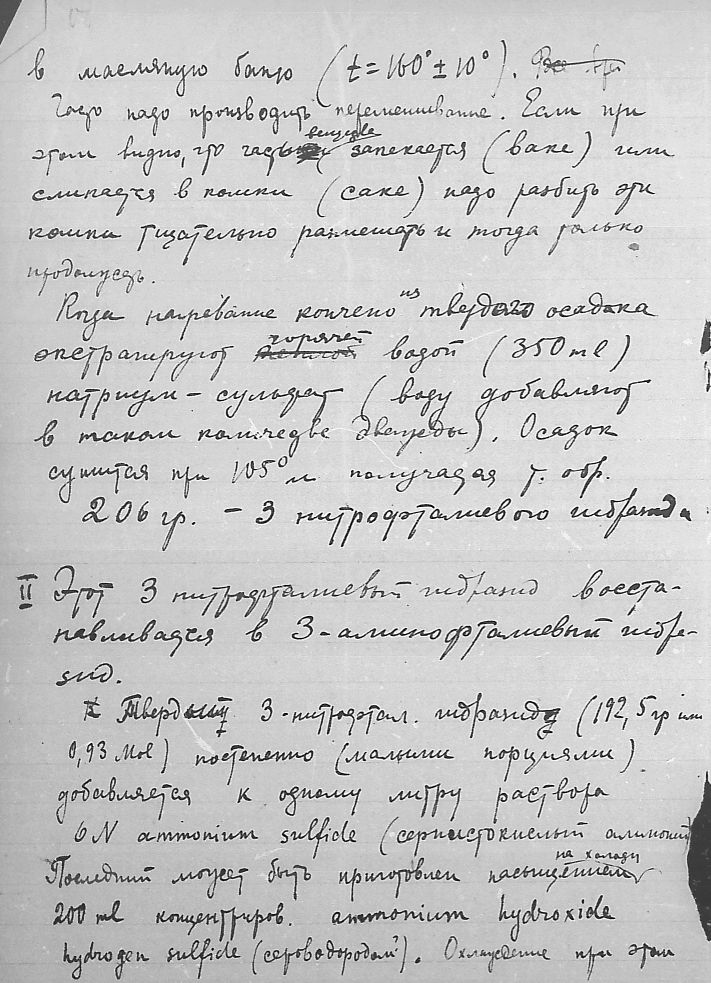 в масляную баню (t = 160° ± 10°). Все при
Часто надо производить перемешивание. Если при
вещество
этом видно, что запекается (bake) или
слипается в комки (cake) надо разбить эти
комки тщательно размешать и тогда только
продолжать.
Когда нагревание кончено из твердого осадка
горячей
экстрагируют теплой водой (350 ml)
натриум-сульфат (воду добавляют
в таком количестве дважды). Осадок
сушится при 105° и получается т. обр.
206 гр. - 3 нитрофталиевого гидразида
II Этот 3 нитрофталиевый гидразид восста-
навливается в 3-аминофталиевый гидра-
зид.
Твердый 3-нитрофтал. гидразид (192,5 гр или
0,93 Mol) постепенно (малыми порциями)
добавляется к одному литру раствора
6N ammonium sulfide (сернистокислый аммоний)
на холоду
Последний может быть приготовлен насыщением
200 ml концентриров. ammonium hydroxide
hydrogen sulfide (сероводородом?). Охлаждение при этом